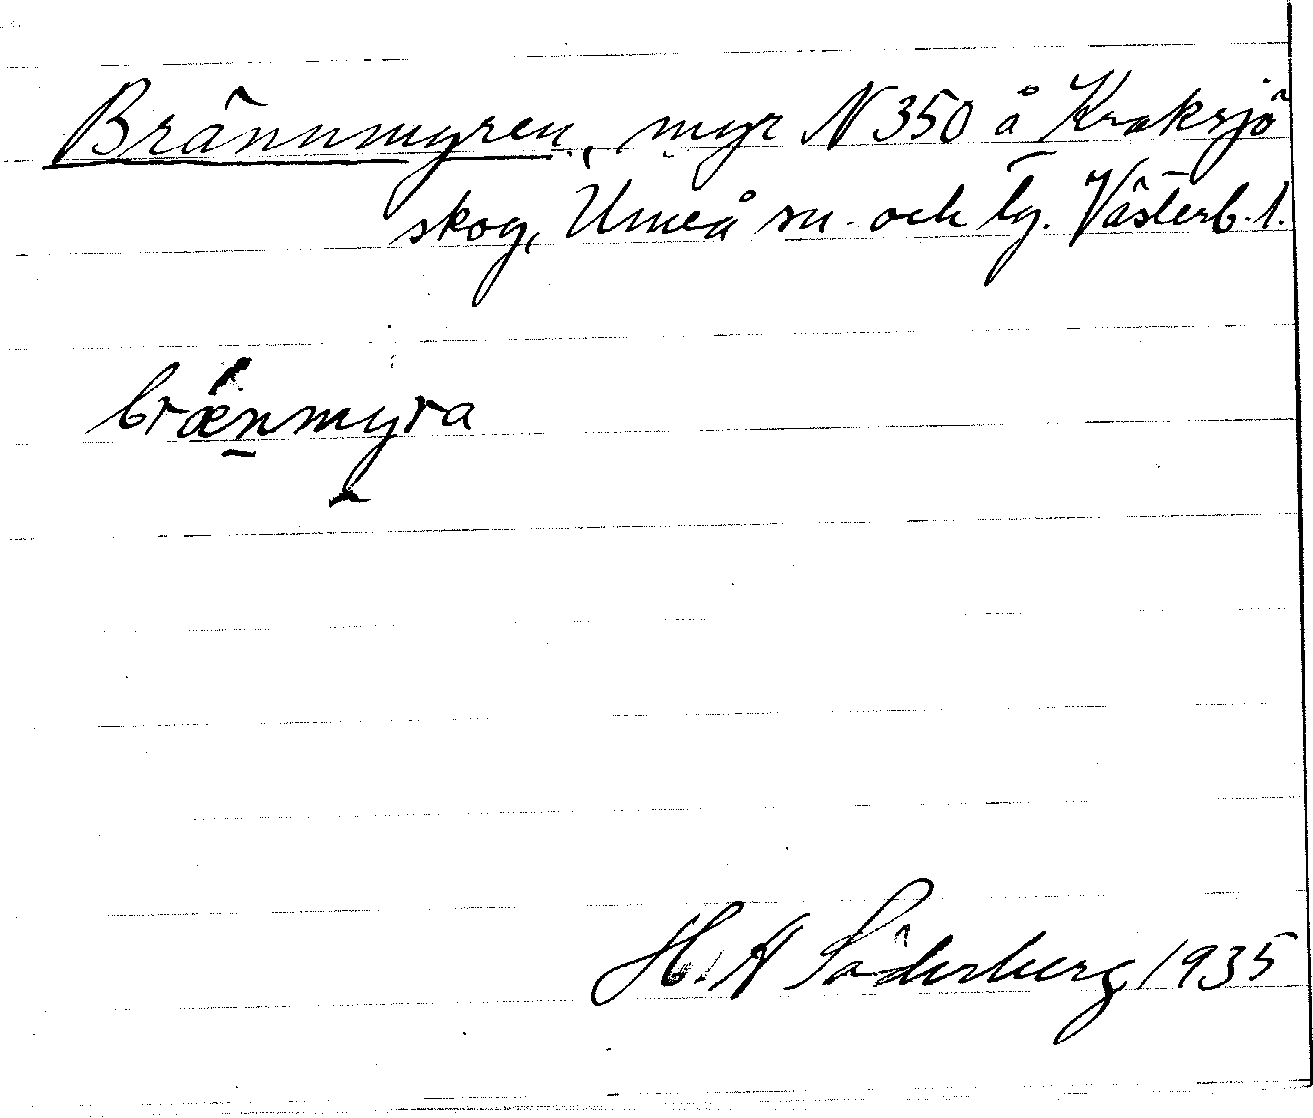 Brännmyren, myr N 350 å Kraksjö
skog, Umeå sn. och tg. Västerb. l.
brænmyra
H. A Söderberg 1935